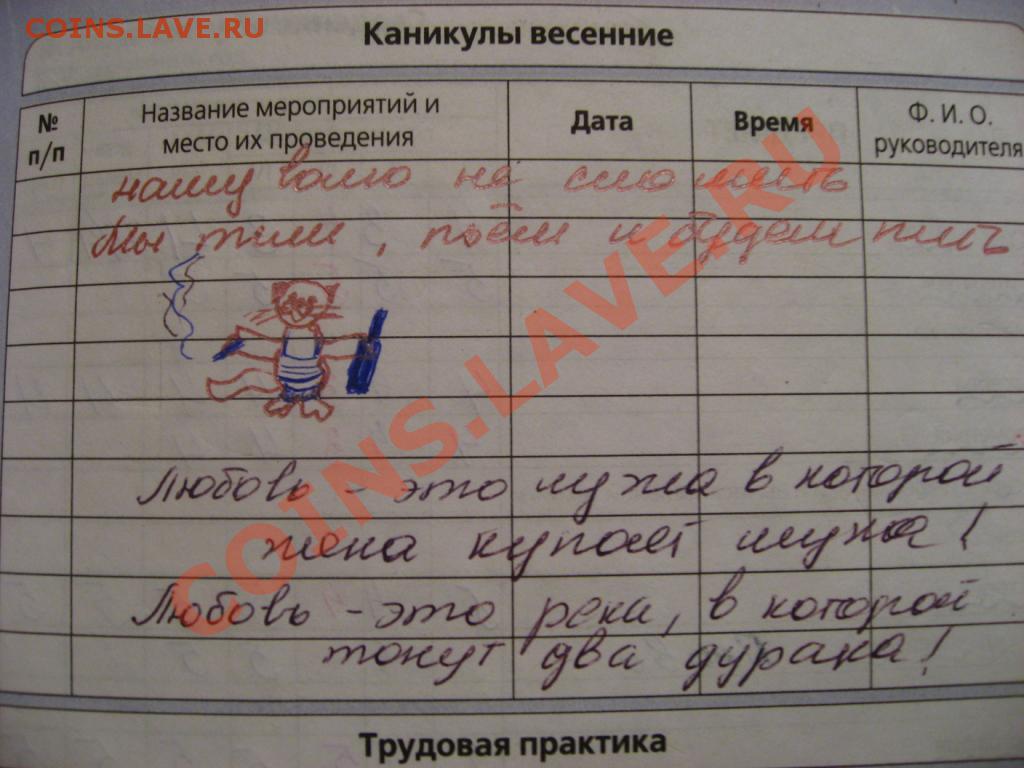 COINS.LAVE.RU
Каникулы весенние
№ п/п
Название мероприятий и
место их проведения
Дата
Время
Ф. И. О.
руководителя
нашу волю не сломить
Мы пили, пьём и будем пить
Любовь - это лужа в которой
жена купает мужа!
Любовь - это река, в которой
тонут два дурака!
Трудовая практика
COINS.LAVE.RU